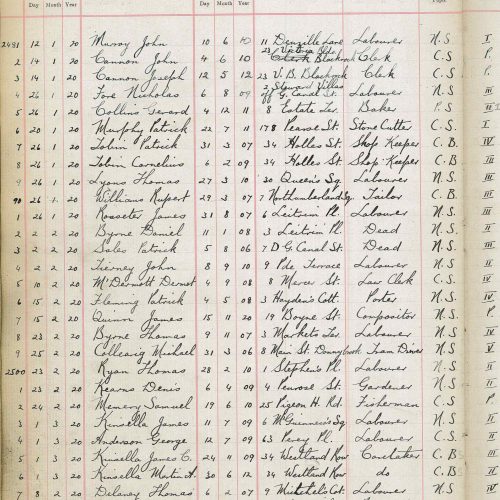 Day Month Year Day Month Year
2491 12 1 20 Murray John 10 6 10 11 Denzille Lane Labourer N.S. I
2 14 1 20 Cannon John 4 6 10 23 Victoria Blackrock Clerk C.S. P.
3 14 1 20 Cannon Joseph 12 5 12 23 V. B. Blackrock Clerk C.S. P.
4 26 1 20 Nicholas 6 8 09 2 Stewart Villas off G. Canal St. Labourer N.S.
5 26 1 20 Collins Gerard 4 12 11 8 Estate Baker P.S
6 20 1 20 Murphy Patrick 22 7 11 178 Pearse St. Stone Cutter C.S. I
7 26 1 20 Tobin Patrick 31 3 07 34 Holles St. Shop Keeper C.B. IV
8 26 1 20 Tobin Cornelius 6 2 09 34 Holles St. Shop Keeper C.B. III
9 26 1 20 Lyons Thomas 27 3 10 30 Queen's Sq. Labourer N.S.
90 26 1 20 Williams Rupert 29 3 07 7 Northumberland Sq. Tailor C.B. III
1 26 1 20 Rossiter James 31 8 07 6 Leitrim Pl. Labourer N.S. III
2 2 2 20 Byrne Daniel 11 1 08 3 Leitrim Pl. Dead N.S.
3 2 2 20 Patrick 5 8 06 7 D G. Canal St. Dead N.S. III
4 2 2 20 Tierney John 8 9 10 9 Pde Terrace Labourer N.S. II
5 10 2 20 McDermott Dermot 4 9 08 8 Mercer St. Law Clerk C.S. IV
6 15 2 20 Fleming Patrick 4 5 08 3 Hayden's Cott Porter N.S. IV
7 15 2 20 Quinn James 15 11 20 19 Boyne St. Compositor N.S. P.
8 23 2 20 Byrne Thomas 9 11 07 3 Labourer N.S IV
9 25 2 20 Michael 31 3 06 8 Main St. Donnybrook Tram Driver N.S
2500 23 2 20 Ryan Thomas 28 2 10 1 Stephen's Pl. Labourer N.S
1 23 2 20 Kearns Denis 6 4 09 4 Penrose St. Gardener N.S.
2 24 2 20 Samuel 19 6 10 25 Pigeon H. Rd. Fisherman C.S P.
3 1 3 20 Kinsella James 11 7 09 6 McGuinness Sq Labourer N.S.
4 1 3 20 Anderson George 12 7 09 63 Percy Pl. Labourer C.S
5 1 3 20 Kinsella James C. 24 11 09 34 Westland Row Caretaker C.B.
6 1 3 20 Kinsella Martin A. 30 6 12 34 Westland Row do C.B.
7 8 3 20 Delaney Thomas 6 2 07 Labourer N.S